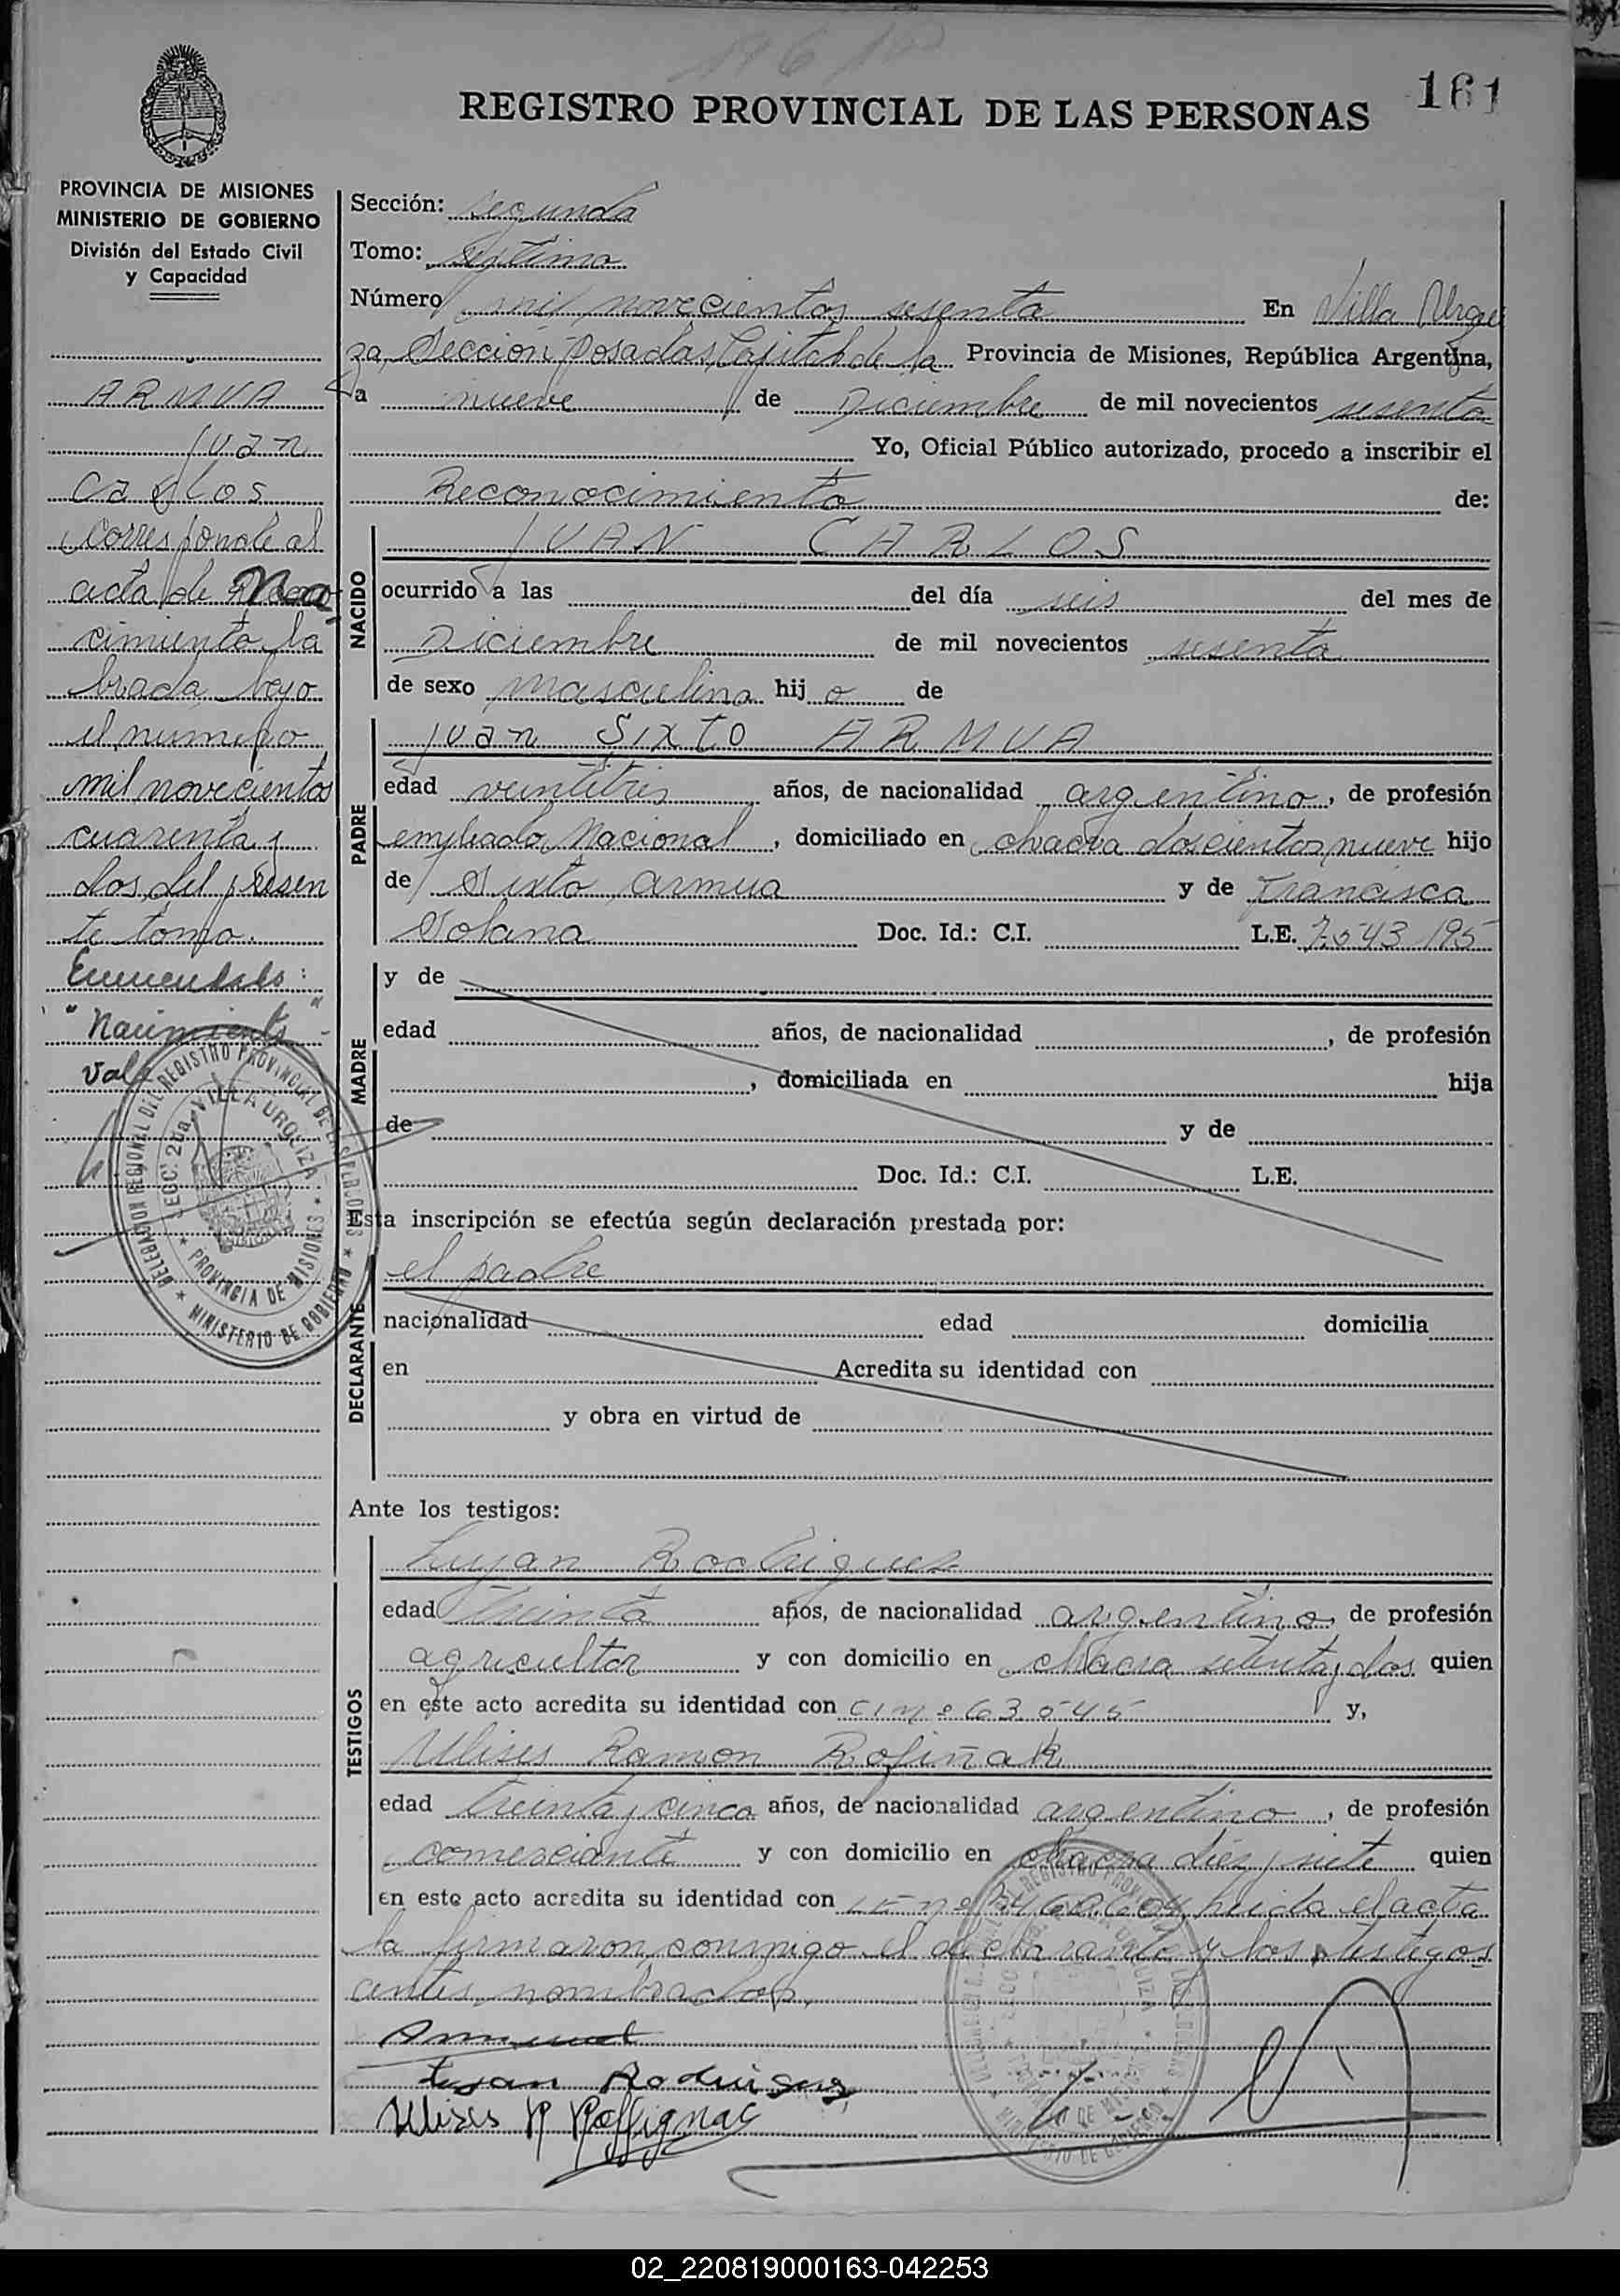 161
REGISTRO PROVINCIAL DE LAS PERSONAS
PROVINCIA DE MISIONES
MINISTERIO DE GOBIERNO
División del Estado Civil
y Capacidad
ARMUA
Juan
Carlos
Corresponde al
acta de Na
cimiento la
brada bajo
el numero
mil novecientos
cuarenta y
dos del presen
te tomo.
Enmendado:
"Nacimiento"
Vale
DELEGACION REGIONAL DEL REGISTRO PROVINCIAL DE LAS PERSONAS
SECC. 2da. VILLA URQUIZA
PROVINCIA DE MISIONES
MINISTERIO DE GOBIERNO
Sección: segunda
Tomo: septimo
Número mil novecientos sesenta En Villa Urqui
za, Sección Posadas, Capital de la Provincia de Misiones, República Argentina,
a nueve de Diciembre de mil novecientos sesenta
Yo, Oficial Público autorizado, procedo a inscribir el
Reconocimiento de:
NACIDO
JUAN CARLOS
ocurrido a las del día seis del mes de
Diciembre de mil novecientos sesenta
de sexo masculino hijo de
PADRE
Juan Sixto ARMUA
edad veintitres años, de nacionalidad argentino, de profesión
empleado Nacional, domiciliado en chacra doscientos nueve hijo
de Sixto Armua y de Francisca
Solana Doc. Id.: C.I. L.E. 7.543.195
MADRE
y de
edad años, de nacionalidad , de profesión
, domiciliada en hija
de y de
Doc. Id.: C.I. L.E.
Esta inscripción se efectúa según declaración prestada por:
DECLARANTE
el padre
nacionalidad edad domicilia
en Acredita su identidad con
y obra en virtud de
Ante los testigos:
TESTIGOS
Lujan Rodriguez
edad treinta años, de nacionalidad argentino de profesión
agricultor y con domicilio en chacra setenta y dos quien
en este acto acredita su identidad con CI nº 63.545 y,
Ulises Ramon Rofiñak
edad treinta y cinco años, de nacionalidad argentino, de profesión
comerciante y con domicilio en chacra diez y siete quien
en este acto acredita su identidad con LE nº leida el acta
la firmaron conmigo el declarante y los testigos
antes nombrados.
Lujan Rodriguez
Ulises R Roffignac
02_220819000163-042253